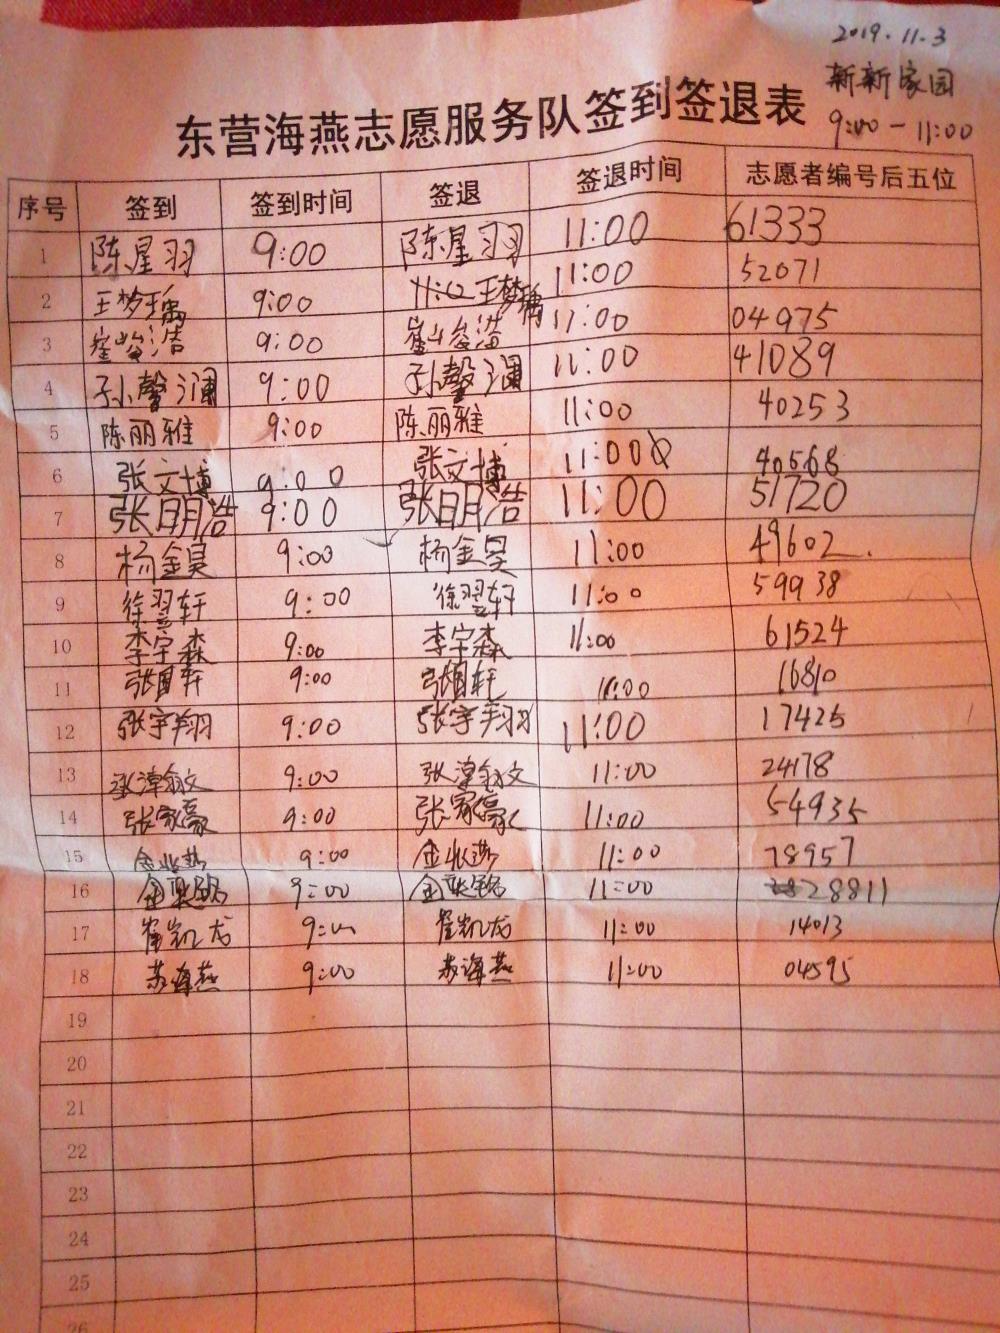 2019.11.3
新新家园
9:00-11:00
东营海燕志愿服务队签到签退表
序号 签到 签到时间 签退 签退时间 志愿者编号后五位
1 陈星羽 9:00 陈星羽 11:00 61333
2 王梦瑀 9:00 王梦瑀 11:00 52071
3 崔峻浩 9:00 崔峻浩 11:00 04975
4 孙馨澜 9:00 孙馨澜 11:00 41089
5 陈丽雅 9:00 陈丽雅 11:00 40253
6 张文博 9:00 张文博 11:00 40568
7 张明浩 9:00 张明浩 11:00 51720
8 杨金昊 9:00 杨金昊 11:00 49602
9 徐翌轩 9:00 徐翌轩 11:00 59938
10 李宇森 9:00 李宇森 11:00 61524
11 9:00 11:00 16810
12 张宇翔 9:00 张宇翔 11:00 17425
13 9:00 11:00 24178
14 张家豪 9:00 张家豪 11:00 54935
15 9:00 11:00 78957
16 9:00 11:00 28811
17 崔凯龙 9:00 崔凯龙 11:00 14013
18 苏海燕 9:00 苏海燕 11:00 04595
19
20
21
22
23
24
25
26